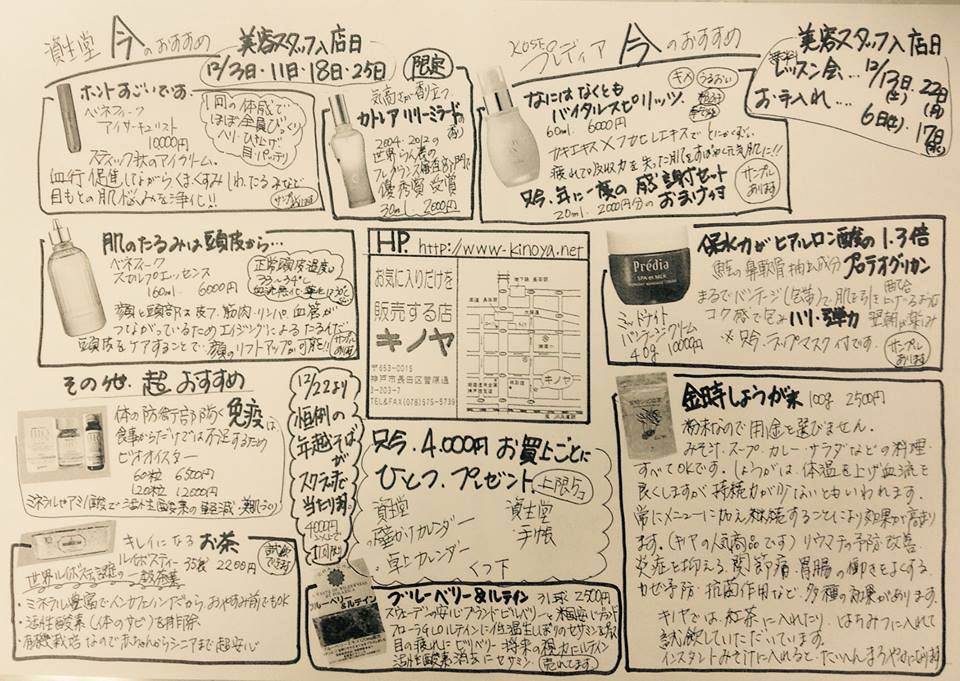 資生堂 今のおすすめ
美容スタッフ入店日
12/3日・11日・18日・25日
限定
ホントすごいです
ベネフィーク
10000円
1回の体感で
ほぼ全員びっくり
ハリ・ひきしめ
目パッチリ
スティック状のアイクリーム。
血行促進しながら、くま、くすみ、しわ、たるみなど
目もとの肌悩みを浄化!!
サンプルあります
気高さが創立つ
カトレアリリーミラード
2004・2012の
世界らん展の
フレグランス審査部門で
優秀賞受賞
30ml 2000円
KOSE プレディア 今のおすすめ
なにはなくとも
バイタルスピリッツ
キメ うるおい
60ml 6000円
カキエキス×フカヒレエキスでとにかくすごい
疲れて吸収力を失った肌をすばやく元気肌に!!
只今、年に一度の感謝セット
20ml 2000円分のおまけ付
サンプルあります
美容スタッフ入店日
レッスン会… 12/13日(土) 22日(月)
お手入れ… 6日(土) 17日(水)
肌のたるみは頭皮から…
ベネフィーク
160ml 6000円
正常頭皮温度
顔と頭部は皮フ、筋肉・リンパ、血管が
つながっているためエイジングによるたるんだ
頭皮をケアすることで、顔のリフトアップが可能!!
サンプルあります
HP. http://www-kinoya.net
お気に入りだけを
販売する店
キノヤ
〒653-0015
神戸市長田区菅原通
3-203-7
TEL&FAX(078)575-5739
キノヤ
Prédia
SPA et MER
保水力がヒアルロン酸の1.3倍
鮭の鼻軟骨抽出成分プロテオグリカン
配合
まるでバンテージ(包帯)で肌を引き上げるような
コク感で包みハリ・弾力 翌朝が楽しみ
ミッドナイト
バンテージクリーム
40g 10000円
※只今、スリープマスク付です。
サンプルあります
その他、超おすすめ
体の防衛庁部防ぐ免疫は
食事からだけでは不足するため
ビオオイスター
60粒 6500円
120粒 12000円
ミネラルやアミノ酸など…活性酸素の軽減・美肌づくり
キレイになるお茶
ルイボスティー 35袋 2200円
・ミネラル豊富でノンカフェインだから、おやすみ前でもOK
・活性酸素(体のサビ)を排除
有機栽培なので赤ちゃんからシニアまで超安心
12/22より
恒例の
年越そばが
スクラッチで
当たり付
4000円
只今、4,000円お買上ごとに
ひとつ、プレゼント
上限5コ
資生堂
壁かけカレンダー
卓上カレンダー
資生堂
手帳
くつ下
ブルーベリー&ルテイン
ブルーベリー&ルテイン 31球 2500円
スウェーデンの安心ブランドビルベリーと米国安心ブランド
フローラGLOルテインに低温生しぼりのセサミンを配合
目の疲れにビルベリー 将来の視力にルテイン
活性酸素消去にセサミン
売れてます
金時しょうが末 100g 2500円
粉末なので用途を選びません。
みそ汁・スープ・カレー・サラダなどの料理
すべてOKです。しょうがは、体温を上げ血流を
良くしますが持続力が少ないともいわれます。
常にメニューに加え継続することにより効果が高まり
ます。(キノヤの人気商品です)リウマチの予防改善・
炎症を抑える、関節痛、胃腸の働きをよくする、
カゼ予防・抗菌作用など、多種の効果があります。
キノヤでは、紅茶に入れたり、はちみつに入れて
試飲していただいています。
インスタントみそ汁に入れると、たいへんまろやかになります